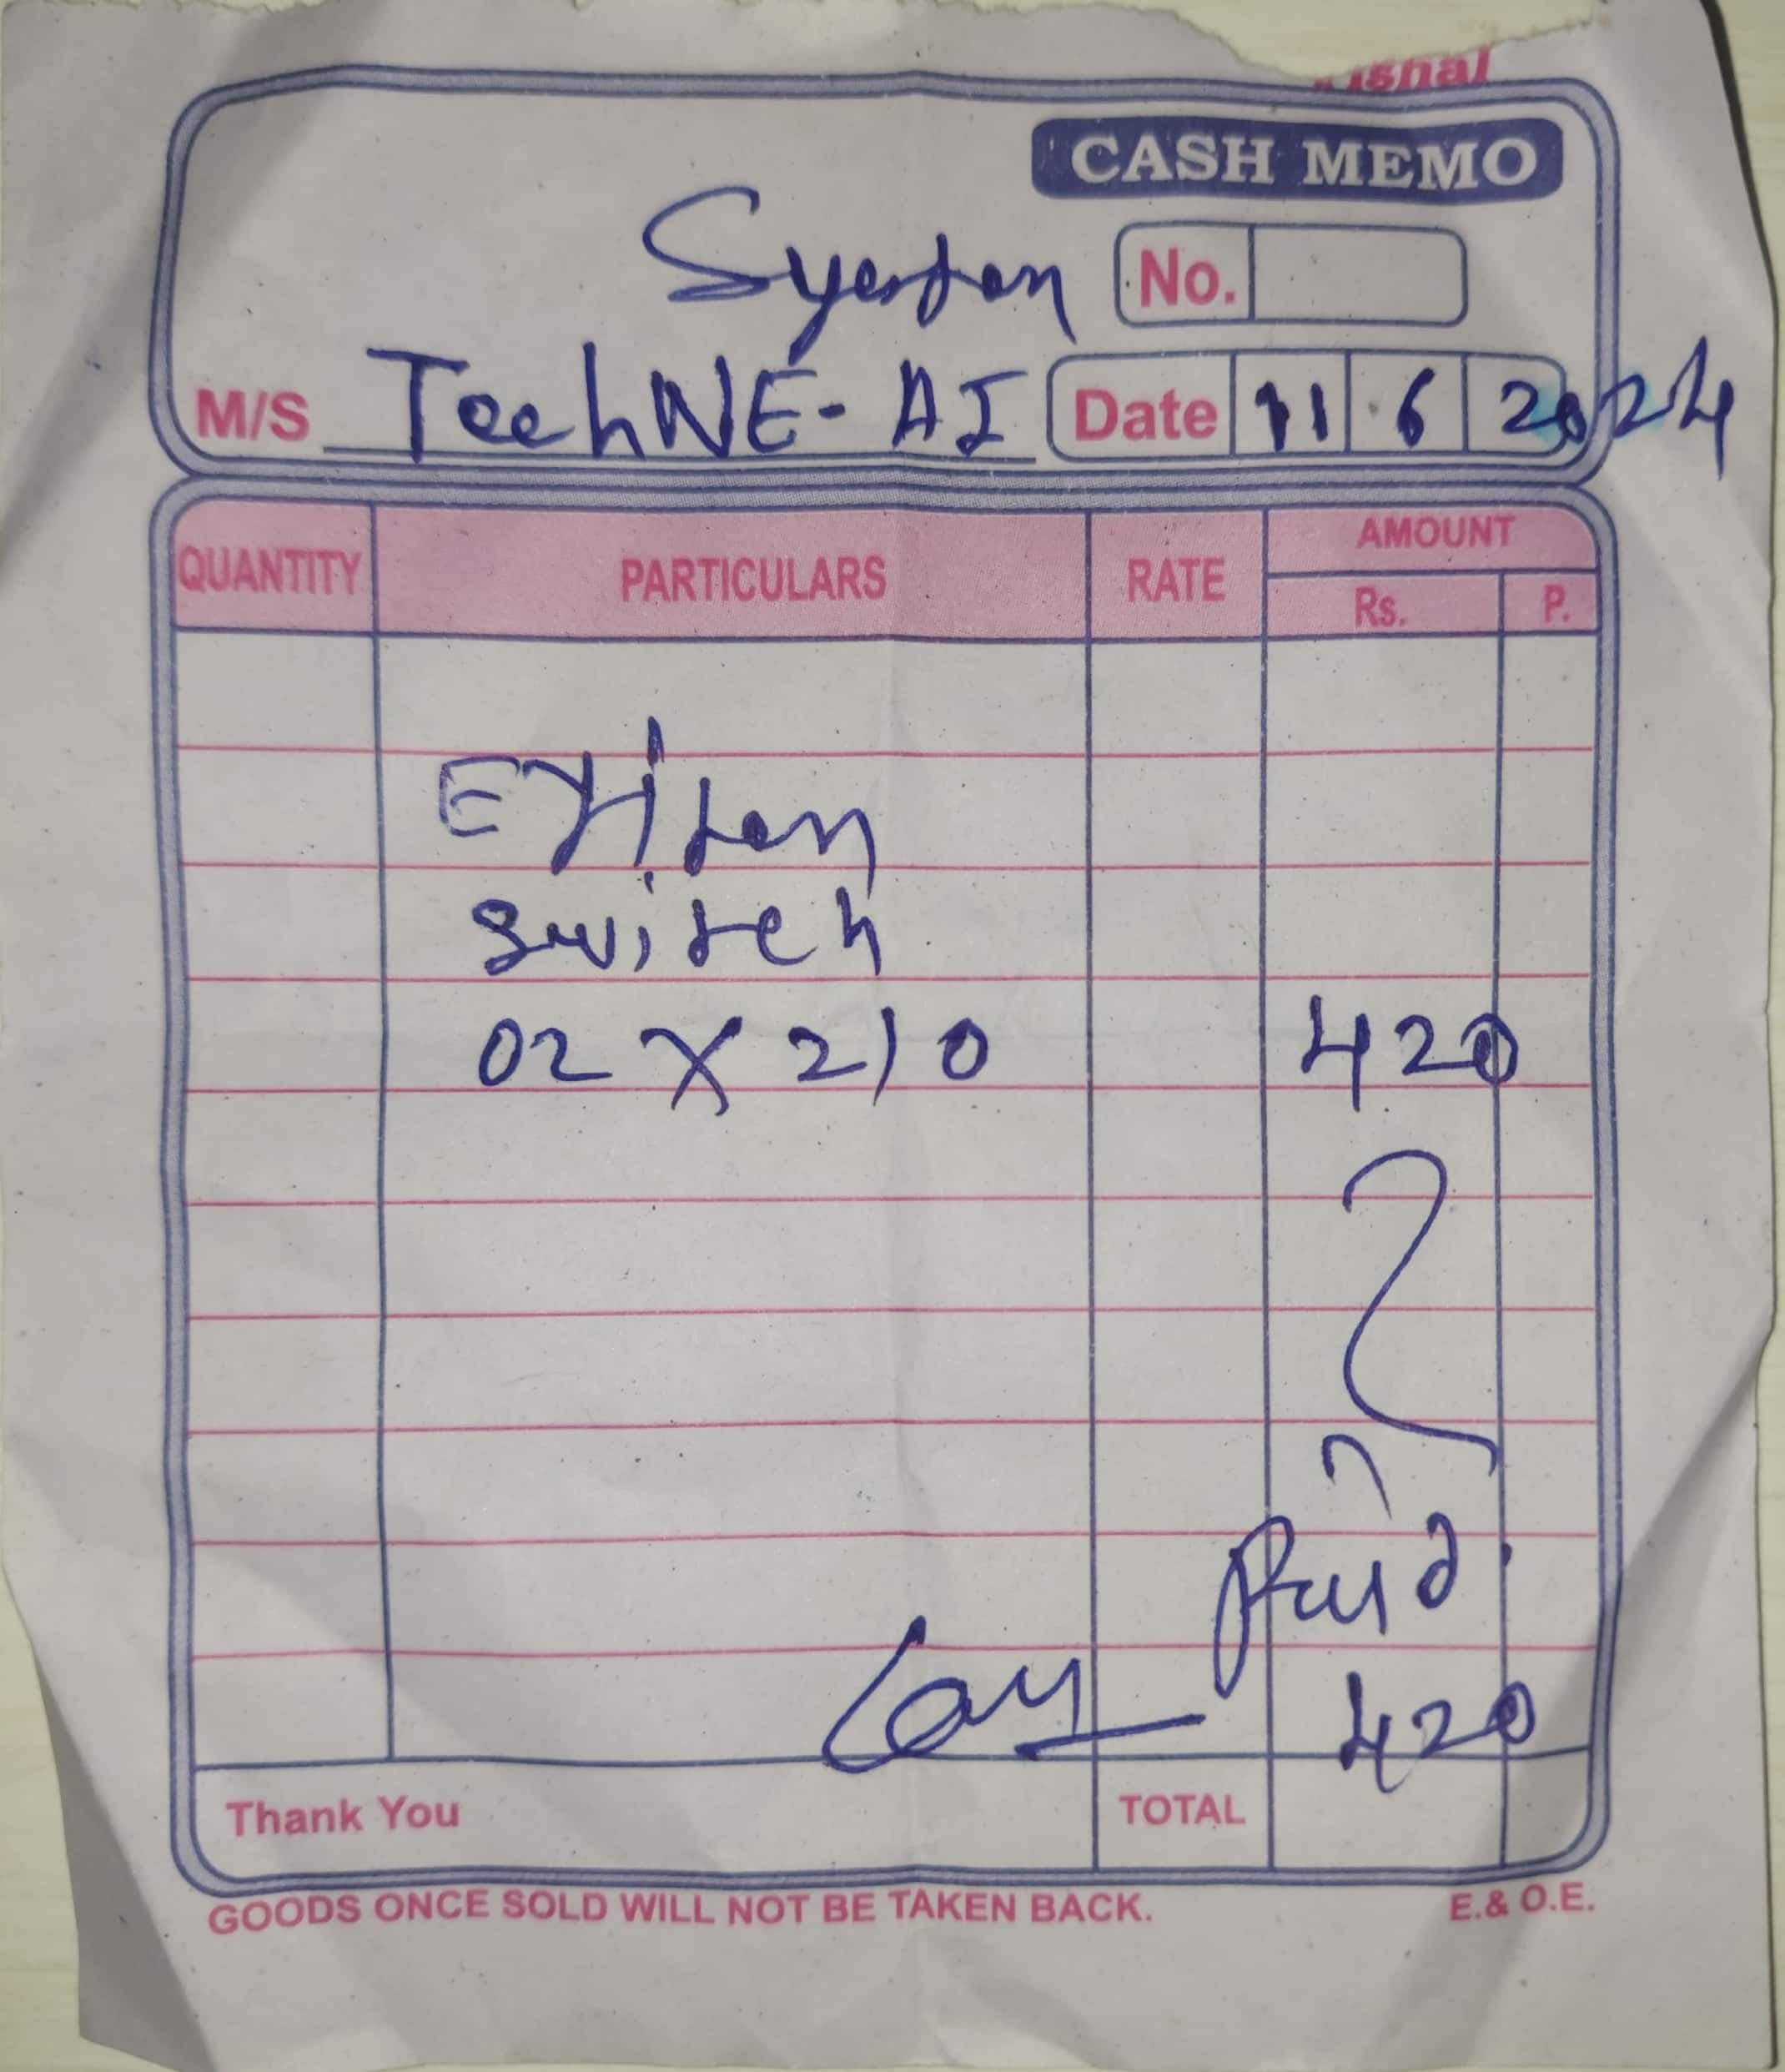 CASH MEMO
System
No.
M/S TechNE-AI
Date 11 6 2024
QUANTITY PARTICULARS RATE AMOUNT
Rs. P.
switch
02 X 210 420
Paid
420
Thank You TOTAL
GOODS ONCE SOLD WILL NOT BE TAKEN BACK. E.& O.E.